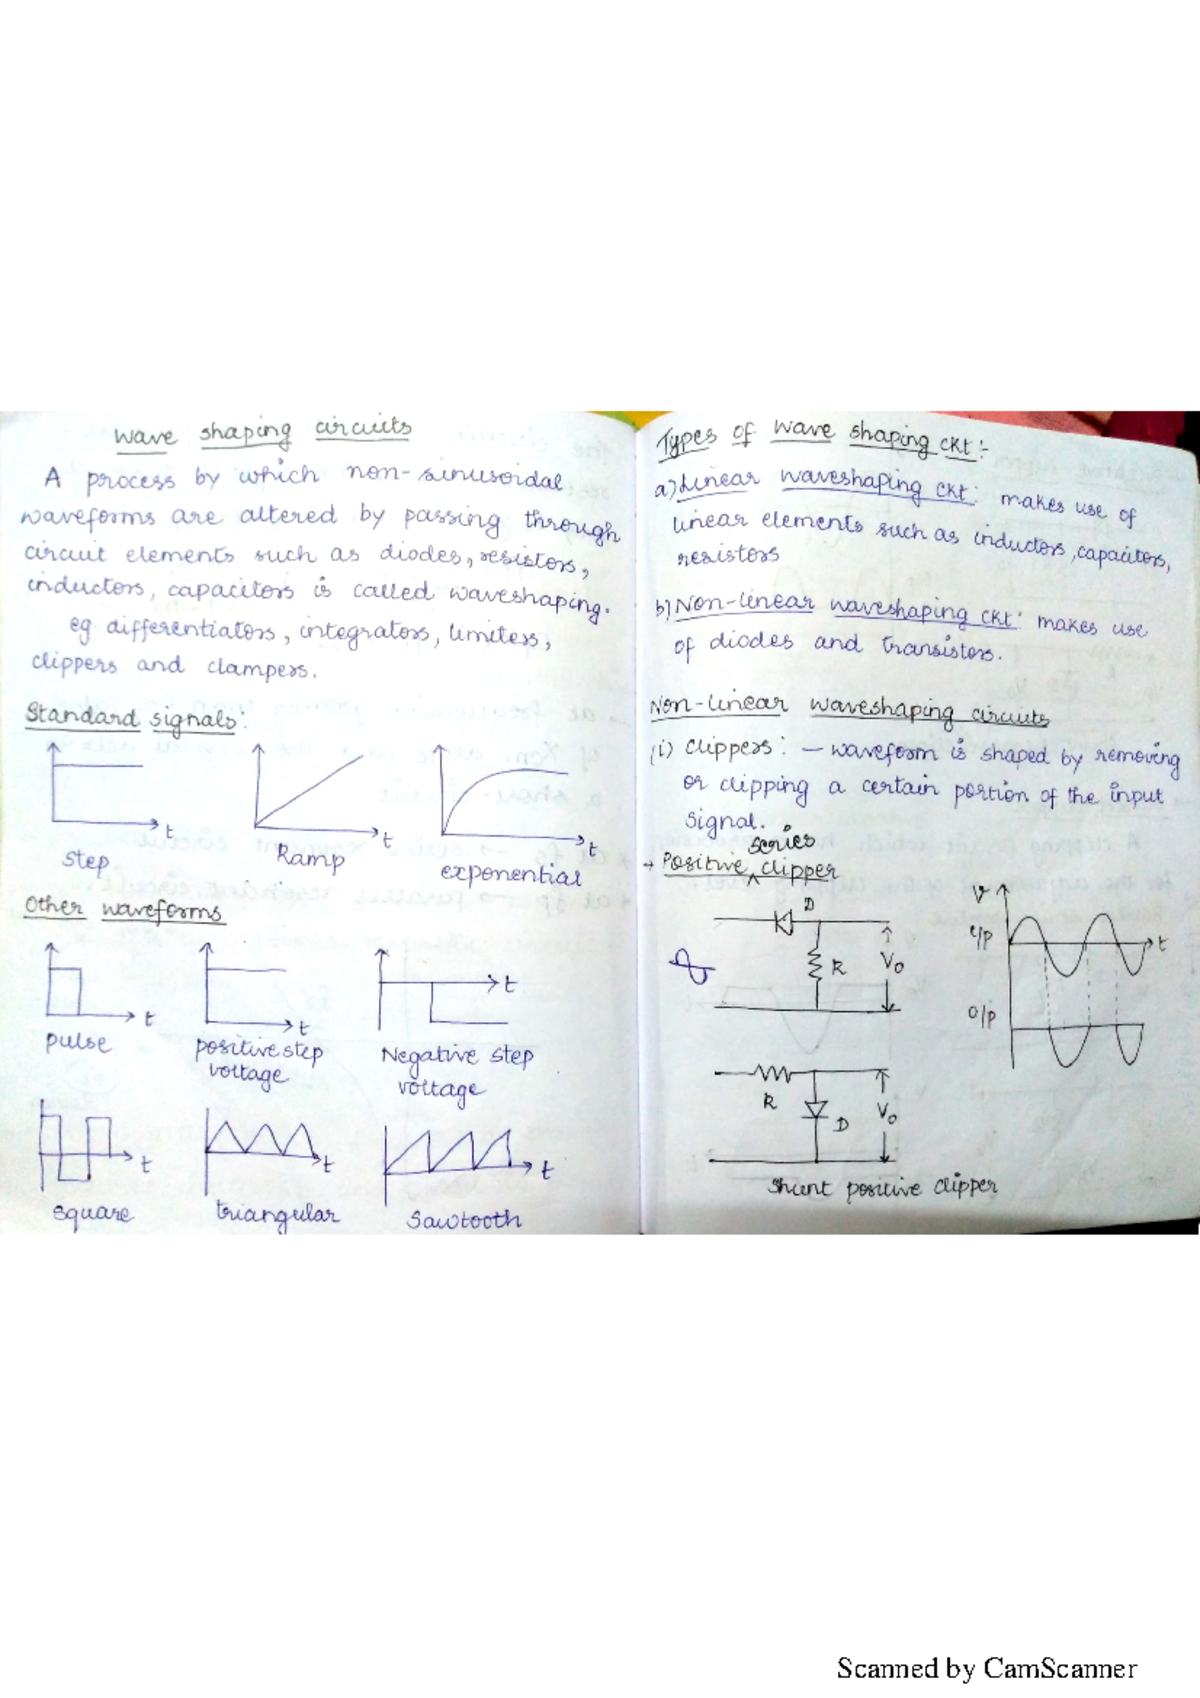 Wave shaping circuits
A process by which non-sinusoidal
waveforms are altered by passing through
circuit elements such as diodes, resistors,
inductors, capacitors is called waveshaping.
eg differentiators, integrators, limiters,
clippers and clampers.
Standard signals:
t
t
t
Step
Ramp
exponential
Other waveforms
t
t
t
pulse
positive step
voltage
Negative step
voltage
t
t
t
square
triangular
Sawtooth
Types of wave shaping ckt:-
a) Linear waveshaping ckt: makes use of
linear elements such as inductors, capacitors,
resistors
b) Non-linear waveshaping ckt: makes use
of diodes and transistors.
Non-linear waveshaping circuits
(i) Clippers: - waveform is shaped by removing
or clipping a certain portion of the input
signal.
series
→ Positive ^ clipper
D
R
Vo
V
i/p
t
o/p
R
D
Vo
Shunt positive clipper
Scanned by CamScanner